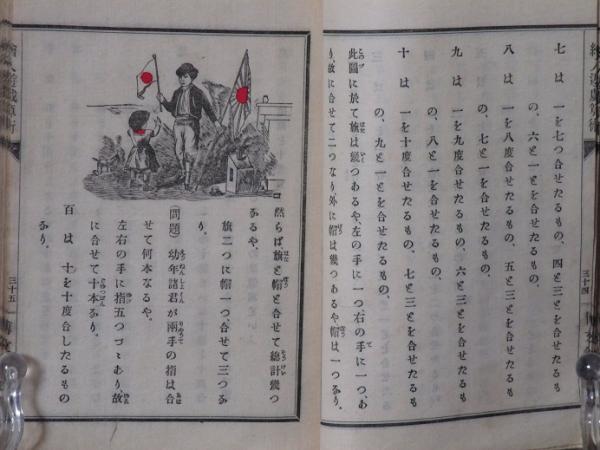 七は　一を七つ合せたるもの、四と三とを合せたるも
の、六と一とを合せたるもの、
八は　一を八度合せたるもの、五と三とを合せたるも
の、七と一とを合せたるもの、
九は　一を九度合せたるもの、六と三とを合せたるも
の、八と一とを合せたるもの、
十は　一を十度合せたるもの、七と三とを合せたるも
の、九と一とを合せたるもの、
此圖に於て旗は幾つあるや、左の手に一つ右の手に一つ、あ
り、故に合せて二つなり、外に帽は幾つあるや、帽は一つなり、
三十四
然らば、旗と帽と合せて總計幾つ
なるや、
旗二つに帽一つ、合せて三つな
り、
(問題)　幼年諸君が兩手の指は合
せて何本なるや、
左右の手に指五つづゝあり、故
に合せて十本なり、
百は　十を十度合したるもの
なり、
三十五